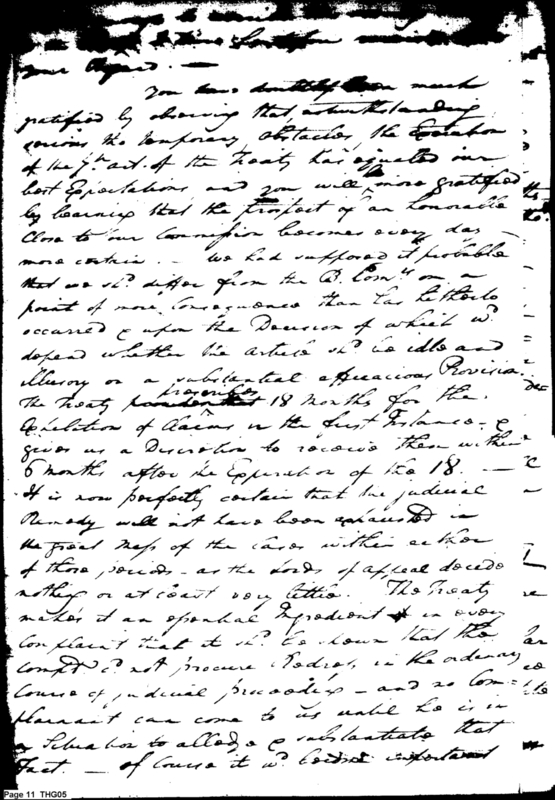 your
You have doubtless been much
gratified by observing that, notwithstanding
various tho temporary obstacles, the Execution
of the 7th art. of the Treaty has equalled our
best Expectations and you will be more gratified
by learning that the prospect of an honorable
Close to our Commission becomes every day
more certain. — We had supposed it probable
that we shd. differ from the B. Comrs. on a
point of more Consequence than has hitherto
occurred & upon the Decision of which wd.
depend whether the article shd. be idle and
illusory or a substantial efficacious Provision.
The Treaty prescribes 18 months for the
Exhibition of Claims in the first Instance - &
gives us a Discretion to receive them within
6 months after the Expiration of the 18 —
It is now perfectly certain that the judicial
Remedy will not have been exhausted in
the great Mass of the Cases within either
of those periods - as the Lords of appeal decide
nothing or at least very little. The Treaty
makes it an essential Ingredient in every
Complaint that it shd. be shown that the
Compt. cd. not procure Redress, in the ordinary
Course of judicial proceedings - and no Com=
plainant can come to us until he is in
a Situation to alledge & substantiate that
Fact. — Of Course it wd. become important
Page 11 THG05